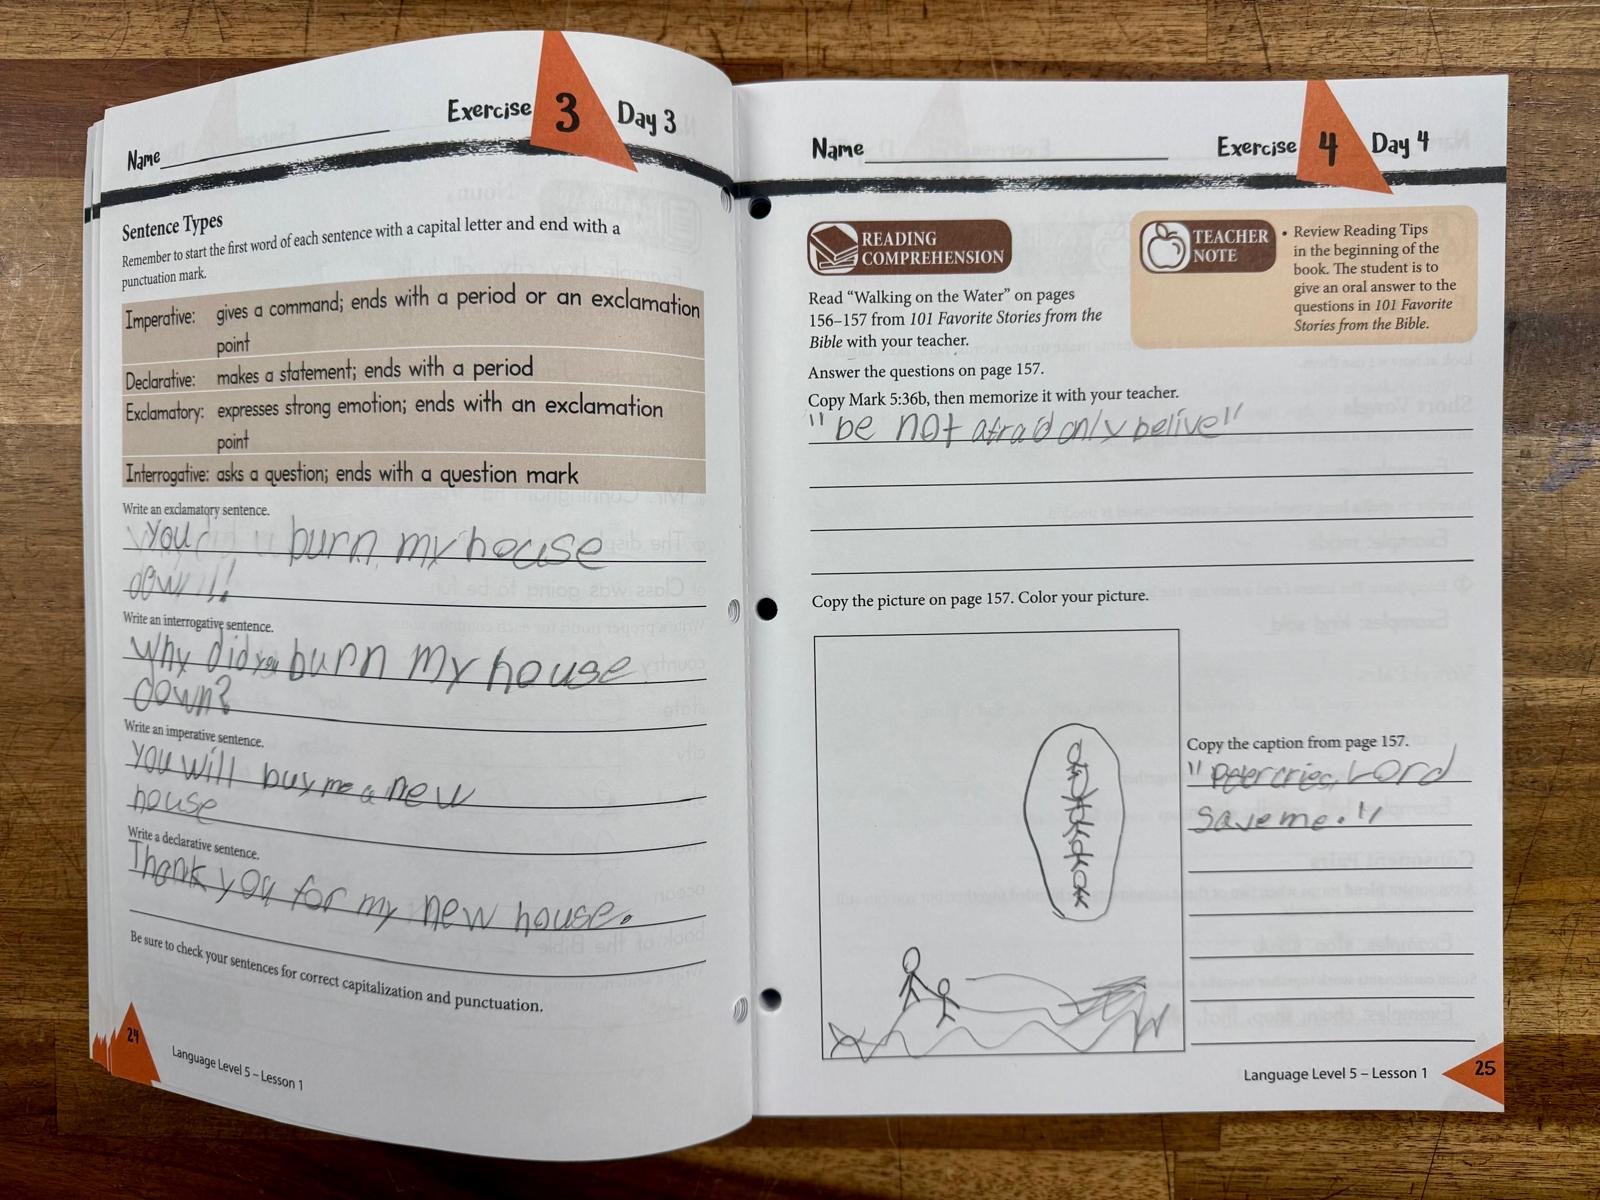 Exercise 3 Day 3
Name
Sentence Types
Remember to start the first word of each sentence with a capital letter and end with a
punctuation mark.
Imperative: gives a command; ends with a period or an exclamation
point
Declarative: makes a statement; ends with a period
Exclamatory: expresses strong emotion; ends with an exclamation
point
Interrogative: asks a question; ends with a question mark
Write an exclamatory sentence.
you burn my house
down!
Write an interrogative sentence.
Why did you burn my house
down?
Write an imperative sentence.
You will buy me a new
house
Write a declarative sentence.
Thank you for my new house.
Be sure to check your sentences for correct capitalization and punctuation.
24
Language Level 5 – Lesson 1
Name
Exercise 4 Day 4
READING
COMPREHENSION
Read “Walking on the Water” on pages
156–157 from 101 Favorite Stories from the
Bible with your teacher.
TEACHER
NOTE
• Review Reading Tips
in the beginning of the
book. The student is to
give an oral answer to the
questions in 101 Favorite
Stories from the Bible.
Answer the questions on page 157.
Copy Mark 5:36b, then memorize it with your teacher.
"be not afraid only belive"
Copy the picture on page 157. Color your picture.
Copy the caption from page 157.
"Peter cries, Lord
Save me."
Language Level 5 – Lesson 1
25